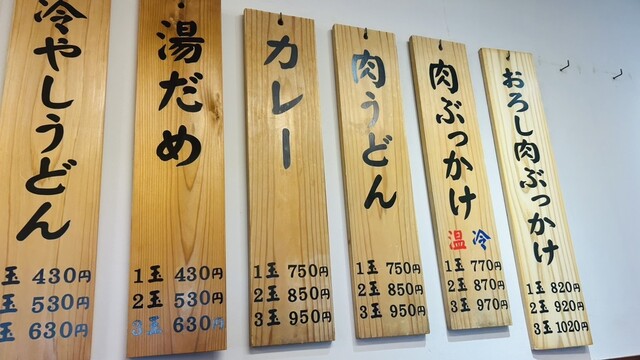 冷やしうどん
玉 430円
玉 530円
玉 630円
湯だめ
1玉 430円
2玉 530円
3玉 630円
カレー
1玉 750円
2玉 850円
3玉 950円
肉うどん
1玉 750円
2玉 850円
3玉 950円
肉ぶっかけ
温 冷
1玉 770円
2玉 870円
3玉 970円
おろし肉ぶっかけ
1玉 820円
2玉 920円
3玉 1020円